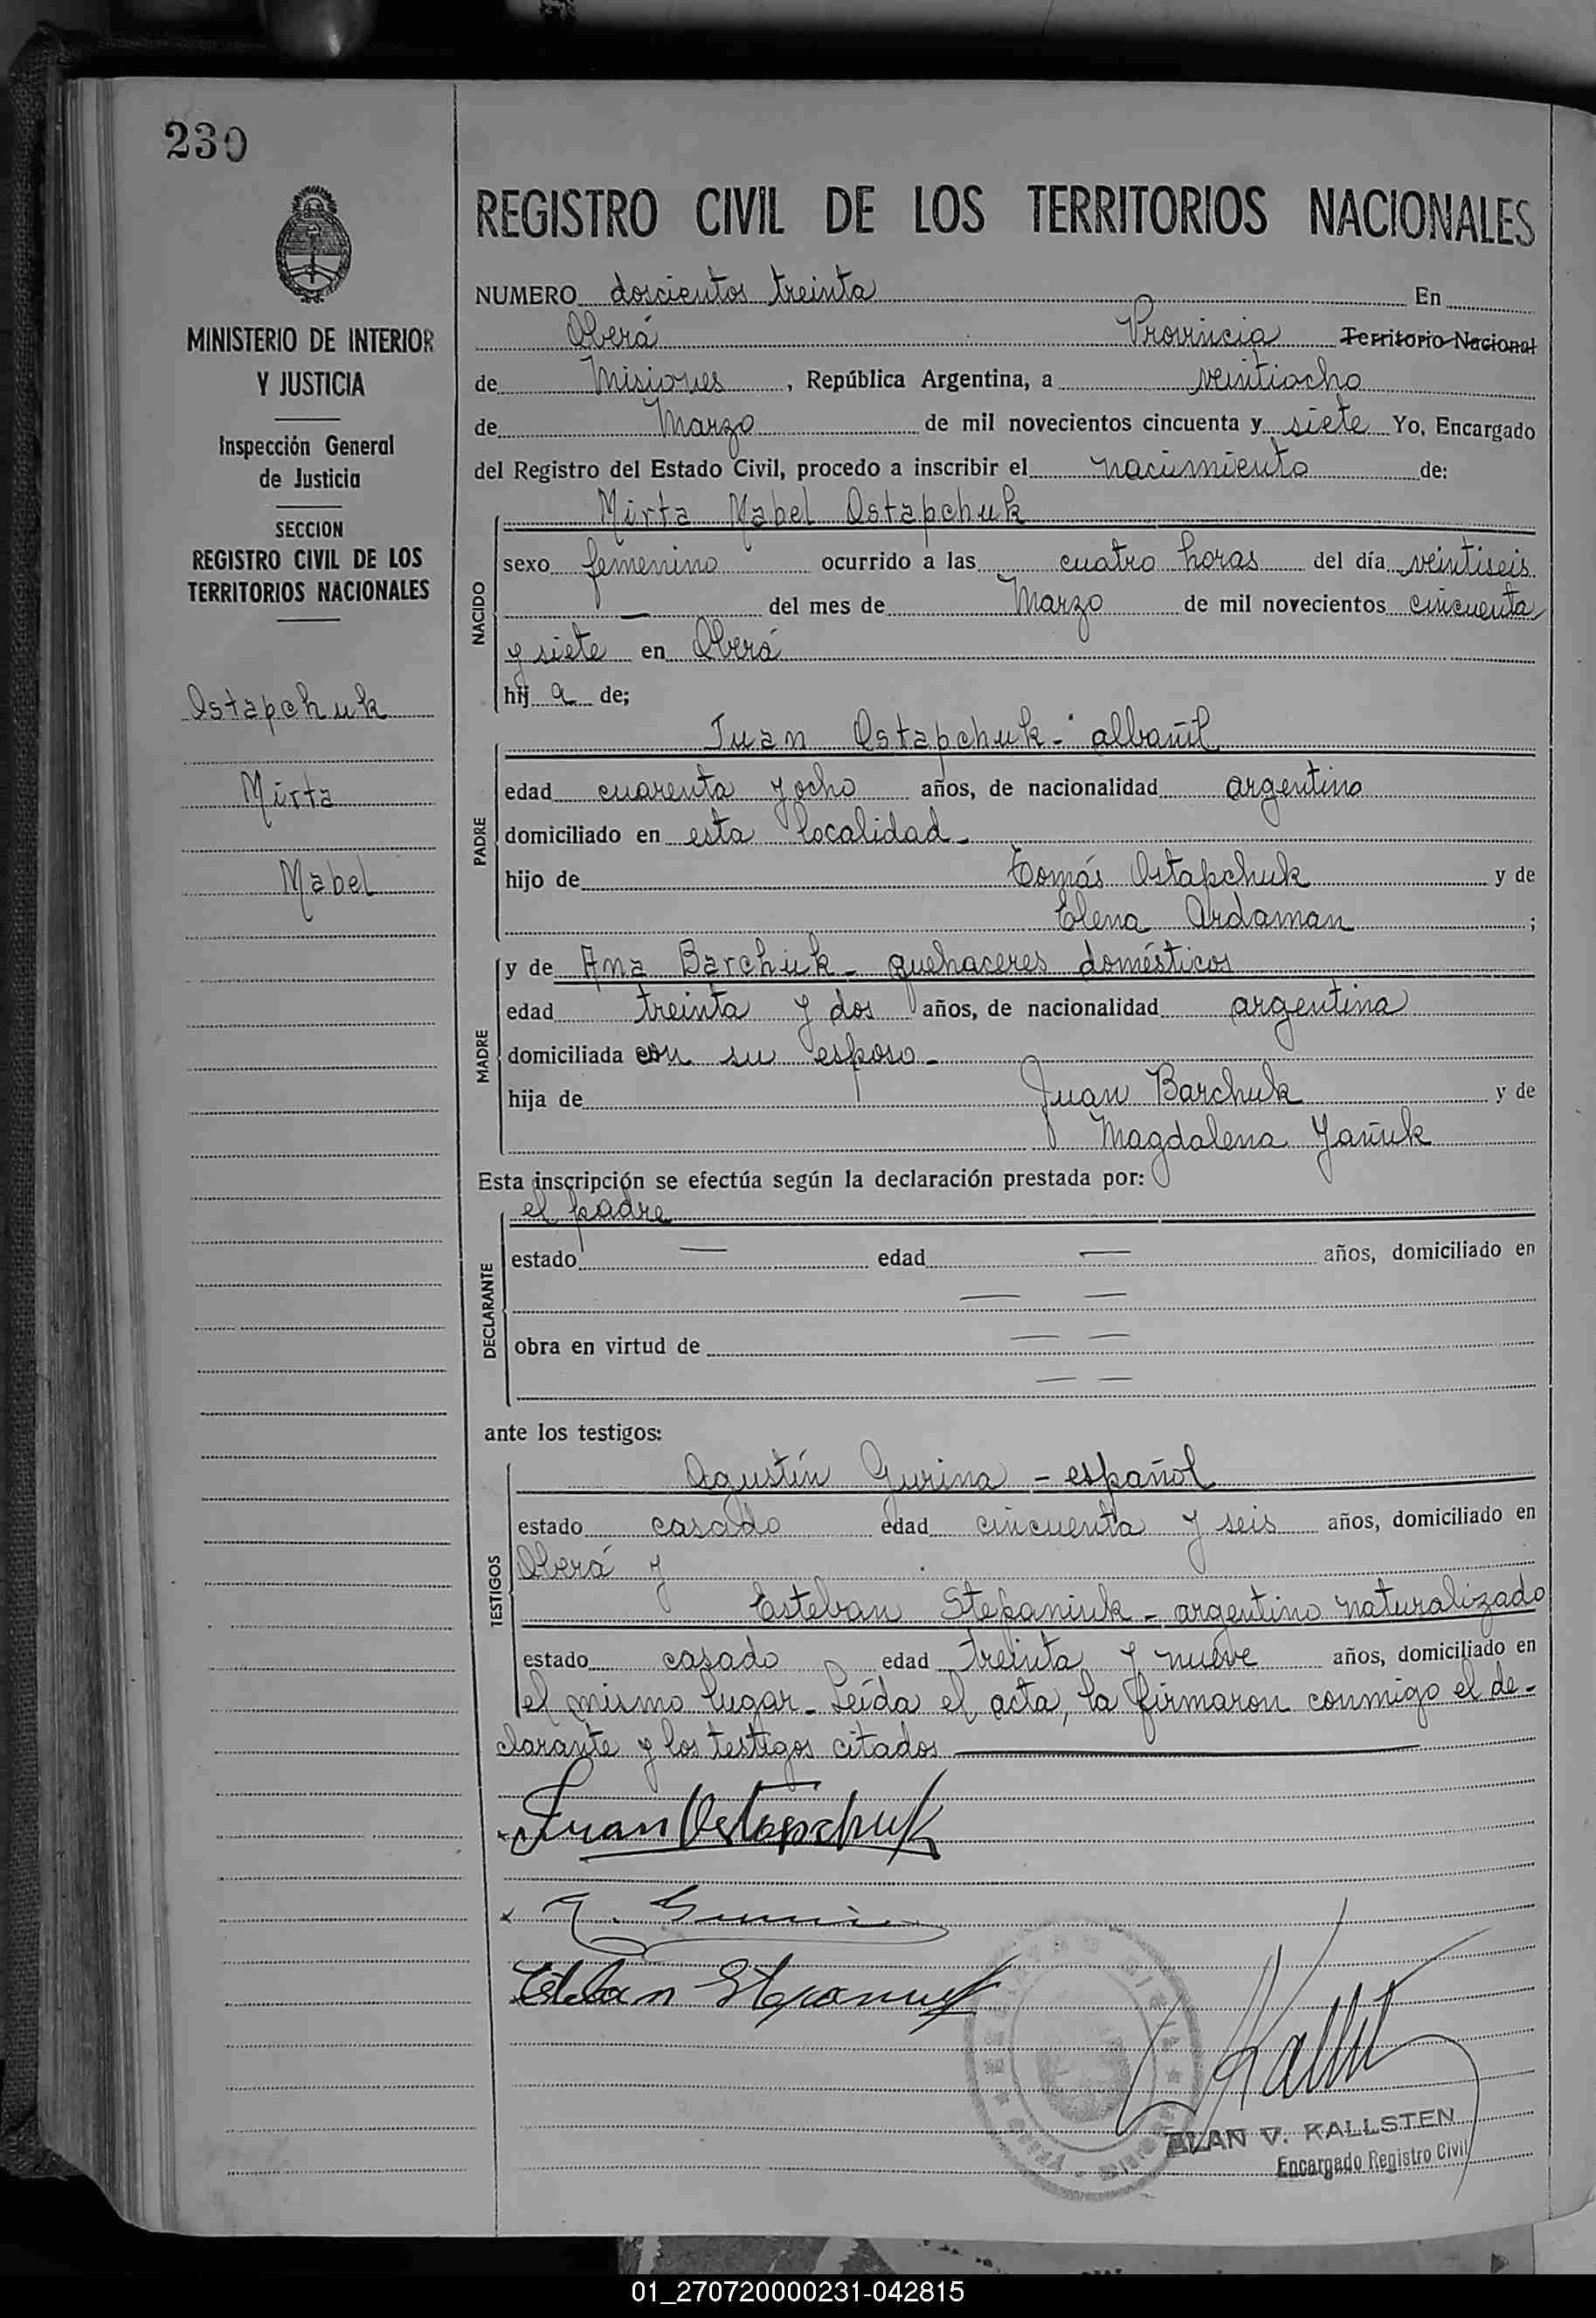 230
MINISTERIO DE INTERIOR
Y JUSTICIA
Inspección General
de Justicia
SECCION
REGISTRO CIVIL DE LOS
TERRITORIOS NACIONALES
Ostapchuk
Mirta
Mabel
REGISTRO CIVIL DE LOS TERRITORIOS NACIONALES
NUMERO doscientos treinta En
Oberá Provincia Territorio Nacional
de Misiones, República Argentina, a veintiocho
de Marzo de mil novecientos cincuenta y siete Yo, Encargado
del Registro del Estado Civil, procedo a inscribir el nacimiento de:
NACIDO
Mirta Mabel Ostapchuk
sexo femenino ocurrido a las cuatro horas del día veintiseis
— del mes de Marzo de mil novecientos cincuenta
y siete en Oberá
hij a de;
PADRE
Juan Ostapchuk - albañil
edad cuarenta y ocho años, de nacionalidad argentino
domiciliado en esta localidad -
hijo de Tomás Ostapchuk y de
Elena Ardaman ;
MADRE
y de Ana Barchuk - quehaceres domésticos
edad treinta y dos años, de nacionalidad argentina
domiciliada con su esposo -
hija de Juan Barchuk y de
Magdalena Yañuk
Esta inscripción se efectúa según la declaración prestada por:
DECLARANTE
el padre
estado — edad — años, domiciliado en
— —
obra en virtud de — —
— —
ante los testigos:
TESTIGOS
Agustín Gurina - español
estado casado edad cincuenta y seis años, domiciliado en
Oberá y
Esteban Stepaniuk - argentino naturalizado
estado casado edad treinta y nueve años, domiciliado en
el mismo lugar - Leída el acta, la firmaron conmigo el de-
clarante y los testigos citados
Juan Ostapchuk
Esteban Stepaniuk
ALAN V. KALLSTEN
Encargado Registro Civil
01_270720000231-042815